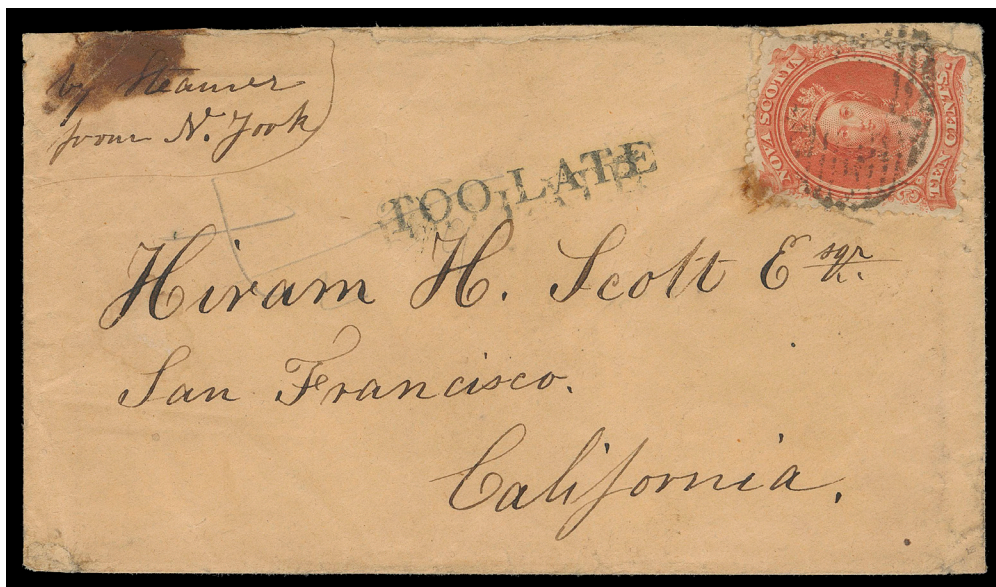 by Steamer
from N. York
NOVA SCOTIA
TEN CENTS.
TOO LATE
Hiram H. Scott Esqr.
San Francisco.
California.